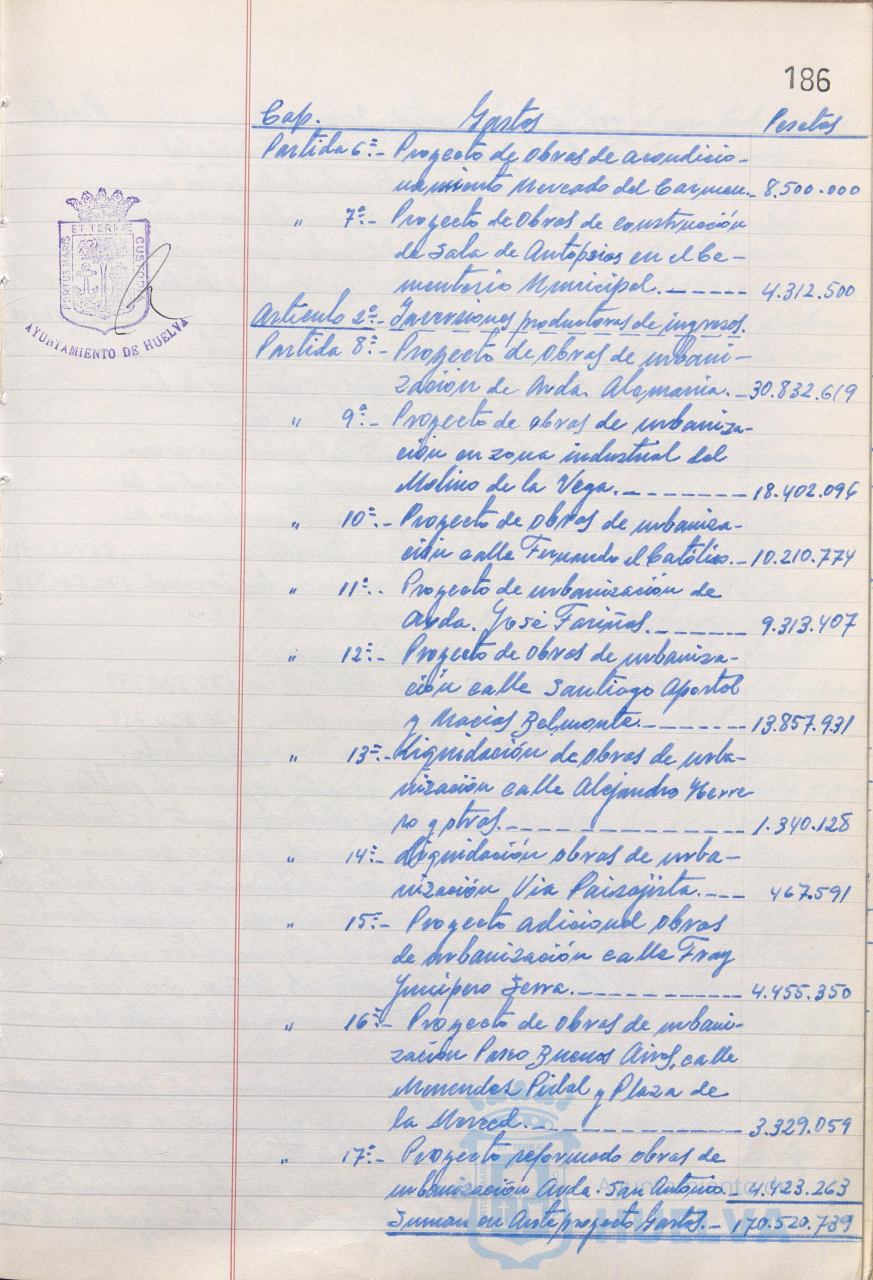 186
Cap. Gastos Pesetas
Partida 6ª.- Proyecto de obras de acondicio-
namiento Mercado del Carmen.- 8.500.000
" 7ª.- Proyecto de obras de construcción
de Sala de Autopsias en el Ce-
menterio Municipal.------ 4.312.500
Artículo 2º.- Inversiones productoras de ingresos.
Partida 8ª.- Proyecto de obras de urbani-
zación de Avda. Alemania.- 30.832.619
" 9ª.- Proyecto de obras de urbaniza-
ción en zona industrial del
Molino de la Vega.------- 18.402.096
" 10ª.- Proyecto de obras de urbaniza-
ción calle Fernando el Católico.- 10.210.774
" 11ª.. Proyecto de urbanización de
avda. José Fariñas.------- 9.313.407
" 12ª.- Proyecto de obras de urbaniza-
ción calle Santiago Apostol
y Macias Belmonte.------- 13.857.931
" 13ª.- Liquidación de obras de urba-
nización calle Alejandro Herre
ro y otros.------------- 1.340.128
" 14ª.- Liquidación obras de urba-
nización Via Paisajista.--- 467.591
" 15ª.- Proyecto adicional obras
de urbanización calle Fray
Junípero Serra.---------- 4.455.350
" 16ª.- Proyecto de obras de urbani-
zación Paseo Buenos Aires, calle
Menendez Pidal y Plaza de
la Merced.------------- 3.329.059
" 17ª.- Proyecto reformado obras de
urbanización Avda. San Antonio.- 4.423.263
Suman en Anteproyecto Gastos.- 170.520.739
PORTUS MARIS ET TERRAE CUSTODIA
AYUNTAMIENTO DE HUELVA
Ayuntamiento de
HUELVA